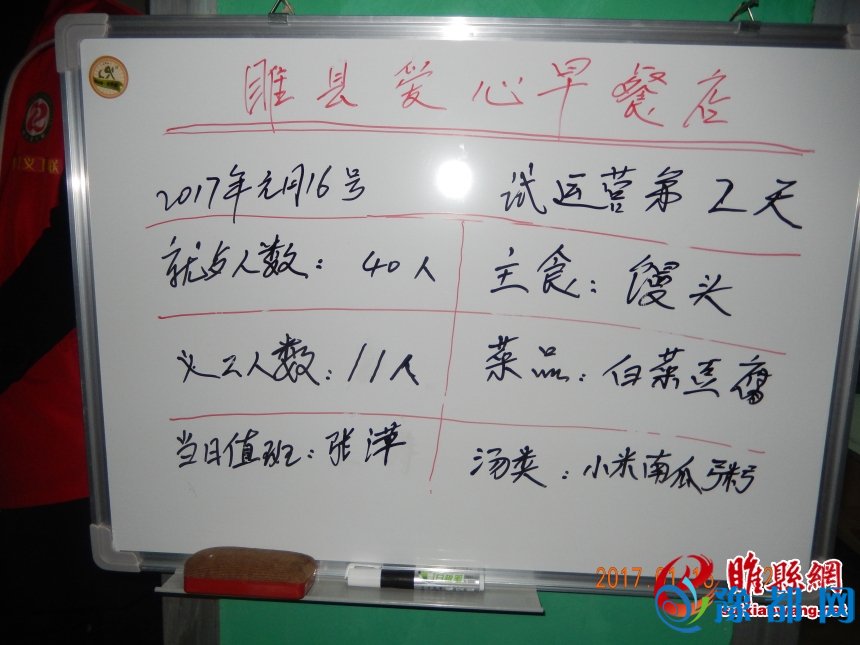 睢县爱心早餐店
2017年元月16号 试运营第2天
就占人数：40人 主食：馒头
义工人数：11人 菜品：白菜豆腐
当日值班：张萍 汤类：小米南瓜粥
义工联
2017.01.16
睢縣網
豫都网